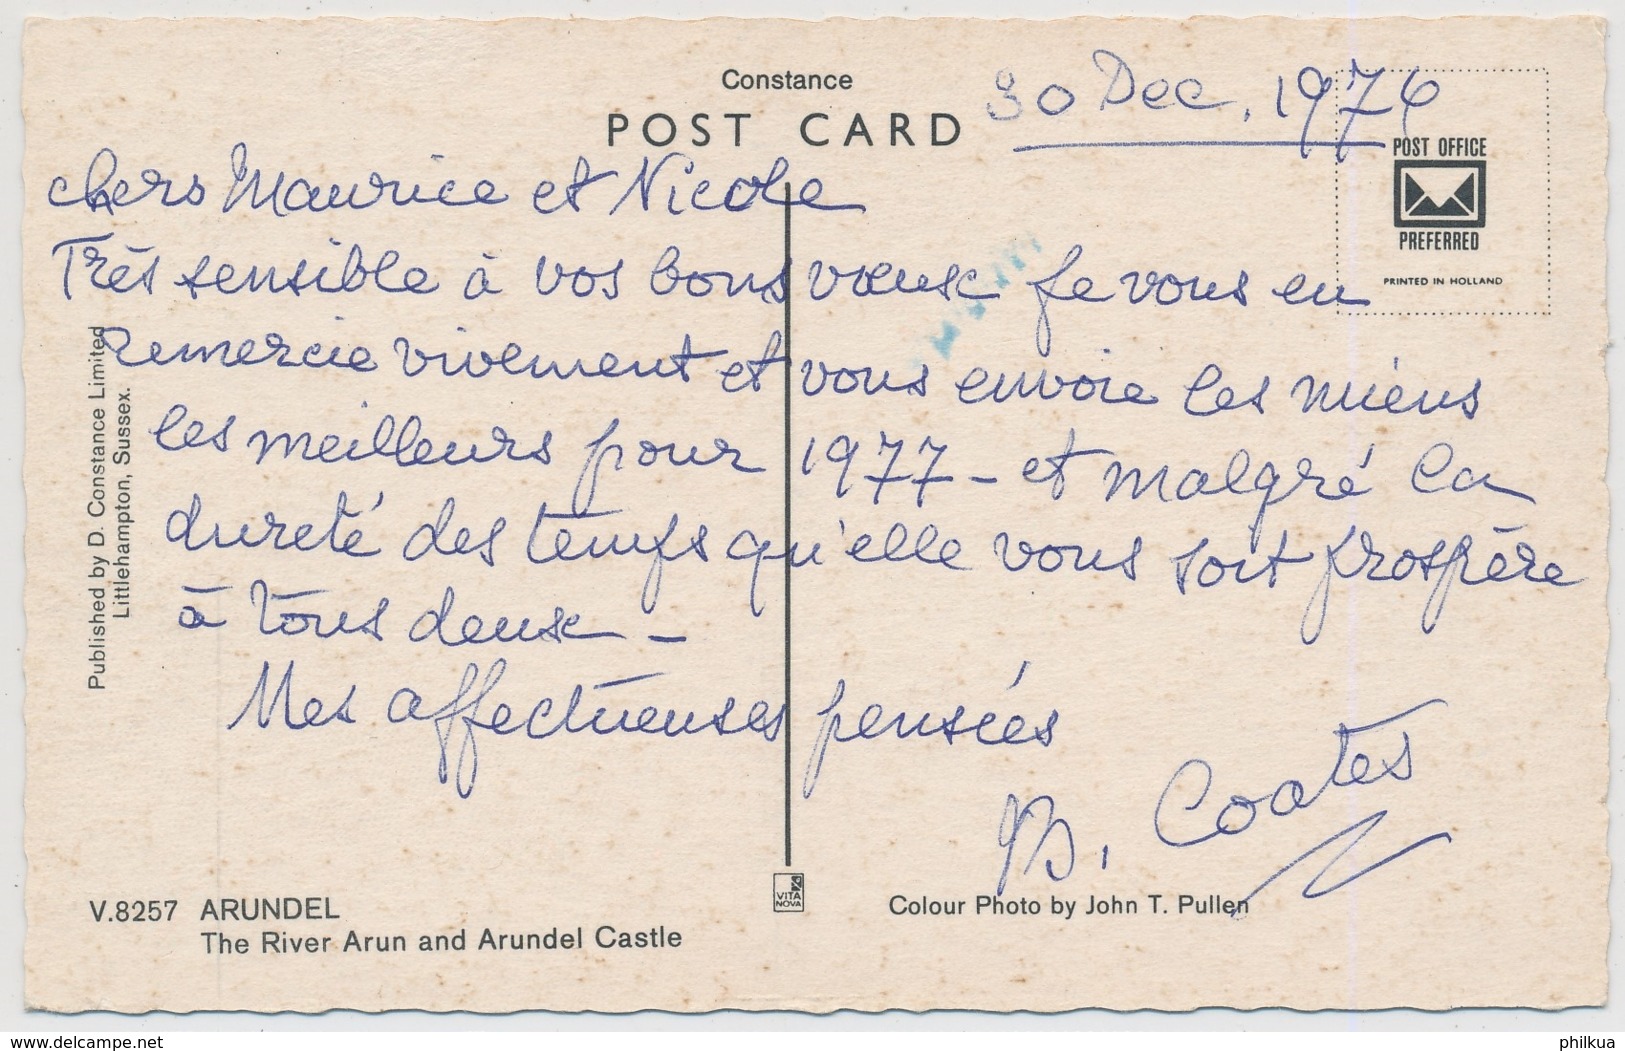 Constance
POST CARD
30 Dec, 1976
POST OFFICE
PREFERRED
PRINTED IN HOLLAND
chers Maurice et Nicole
Très sensible à vos bons vœux je vous en
remercie vivement et vous envoie les miens
les meilleurs pour 1977 - et malgré la
dureté des temps qu'elle vous soit prospère
à tous deux -
Mes affectueuses pensées
B. Coates
Published by D. Constance Limited
Littlehampton, Sussex.
V.8257 ARUNDEL
The River Arun and Arundel Castle
VITA
NOVA
Colour Photo by John T. Pullen
www.delcampe.net
philkua